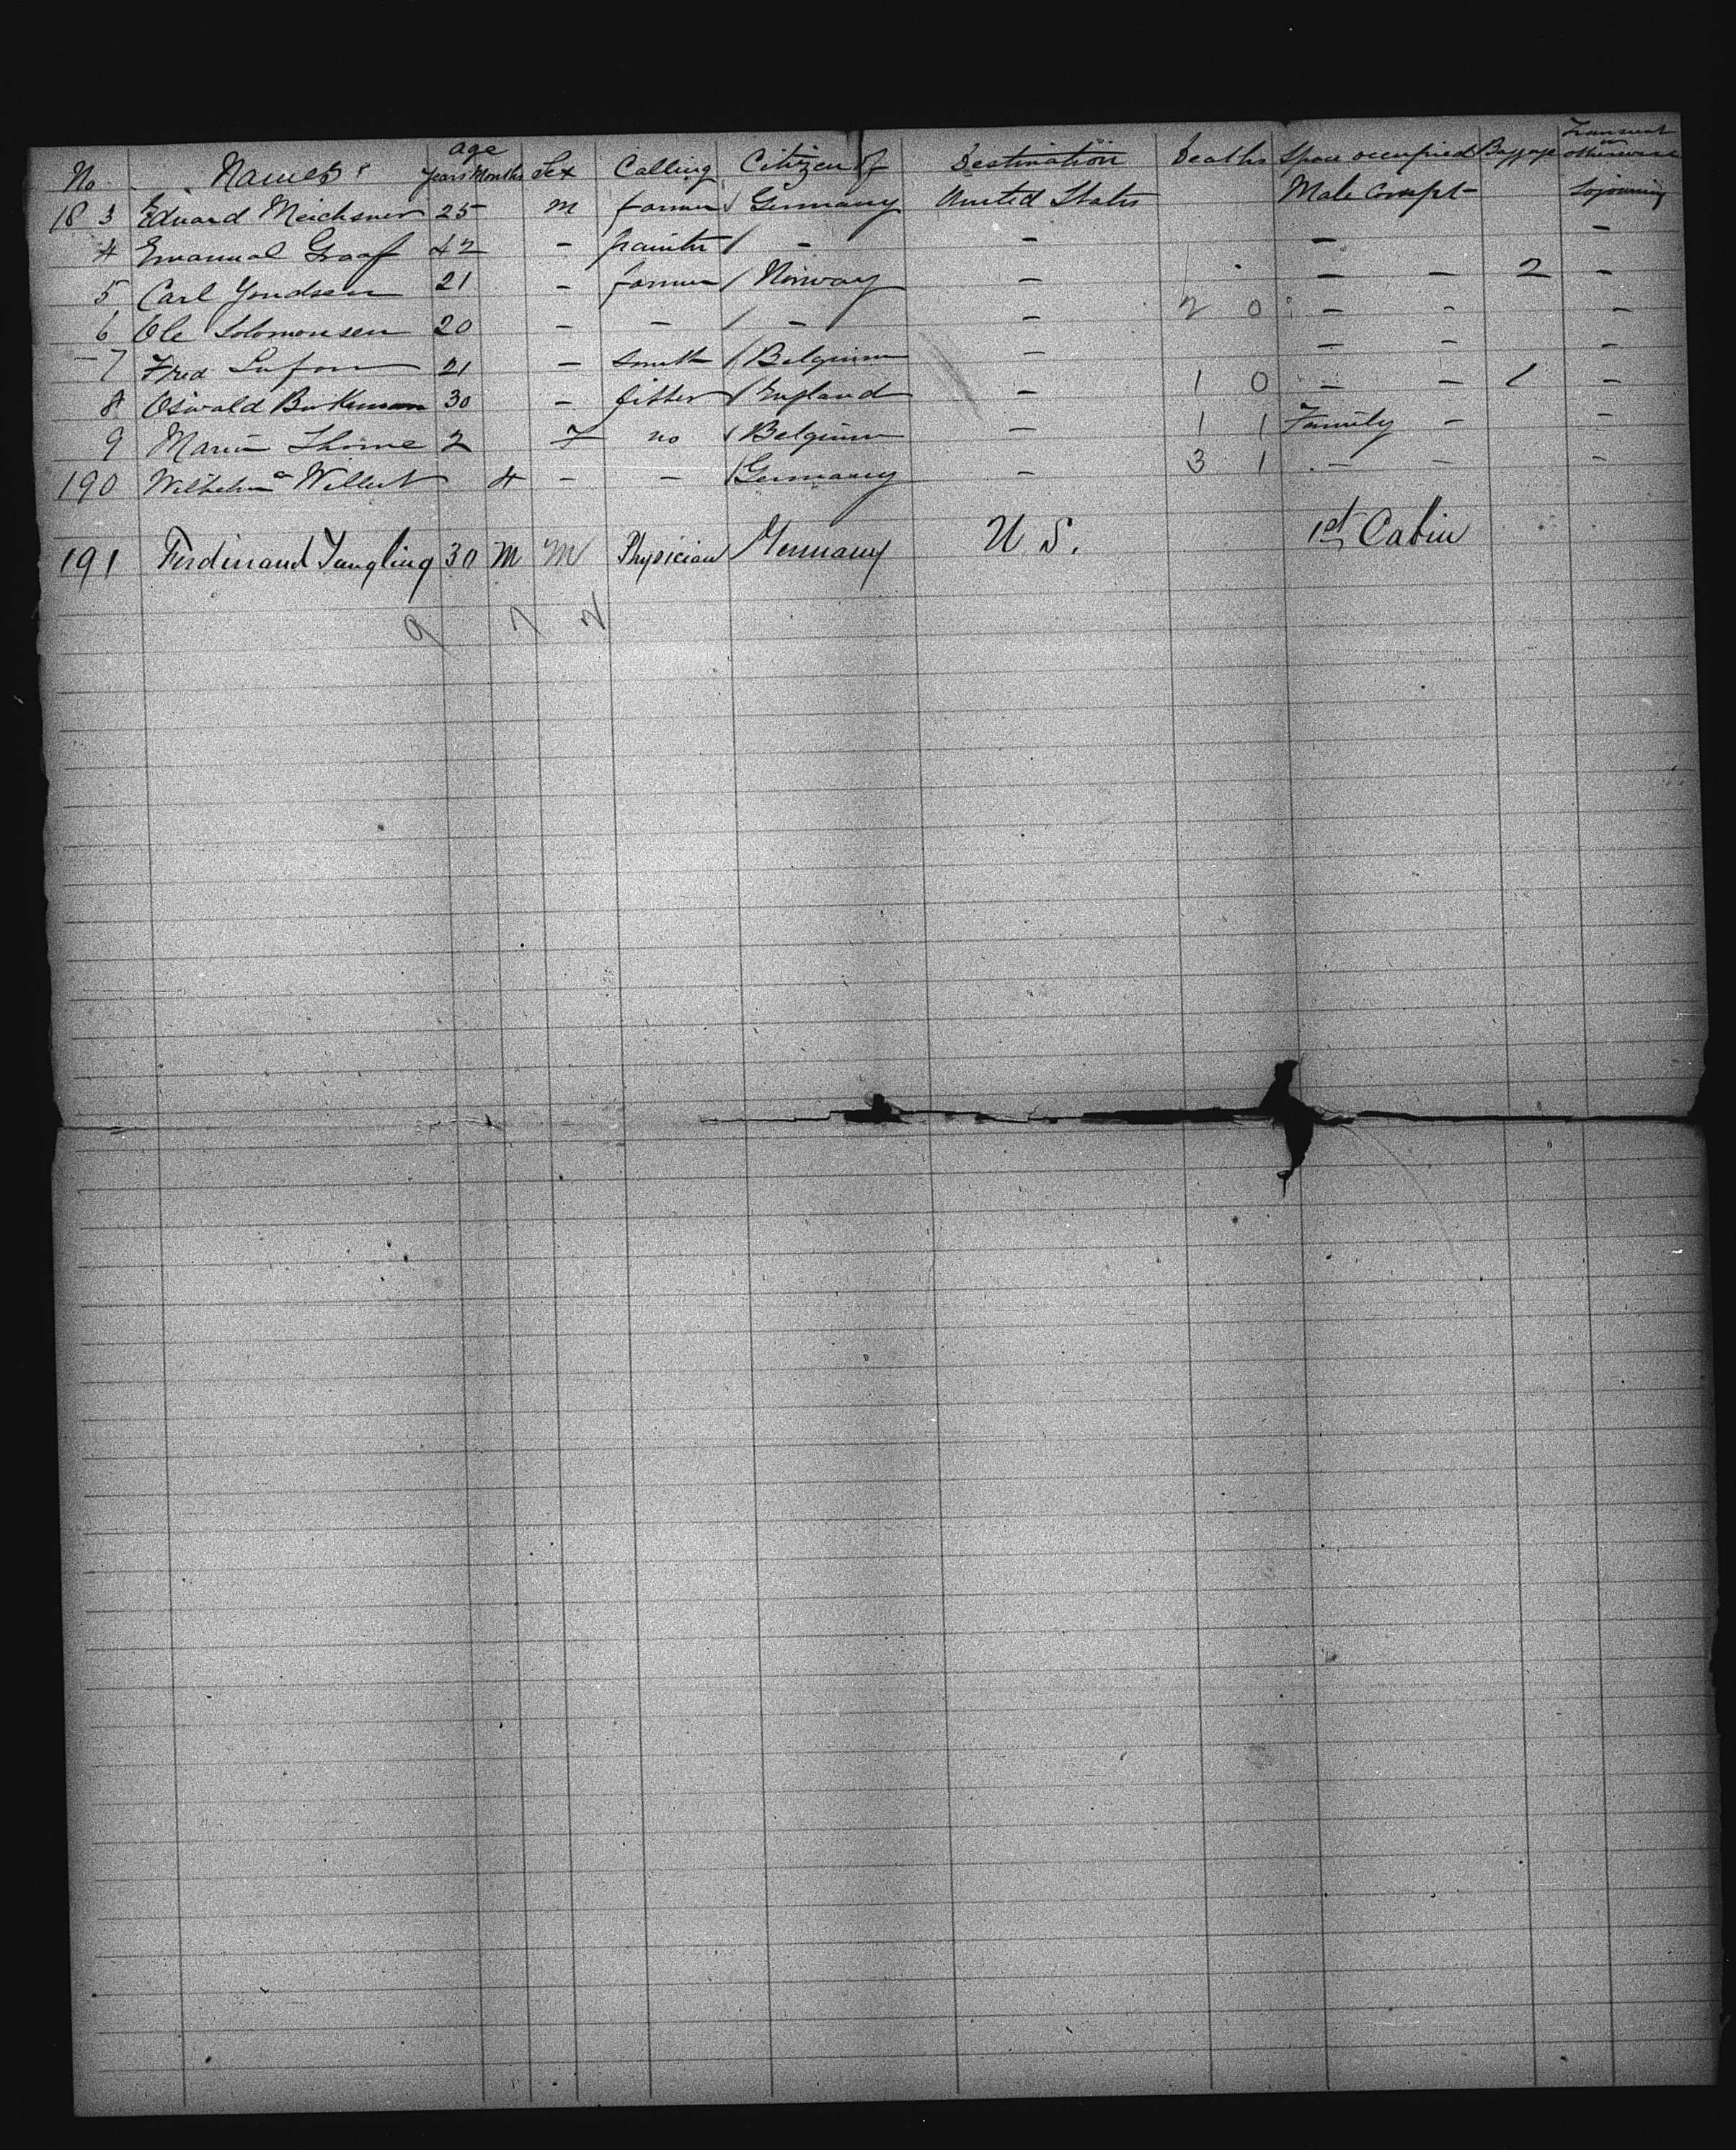 No. Names age Years Months Sex Calling Citizen of Destination Deaths Space occupied Baggage Transient or otherwise
183 Eduard Meichsner 25 m farmer / Germany United States Male Compt Sojourning
4 Emanuel Graaf 42 - painter / - - - -
5 Carl 21 - farmer / Norway - - - 2 -
6 Ole Solomonsen 20 - - / - - 2 0 - - -
7 Fred 21 - smith / Belgium - - - -
8 Oswald 30 - fitter / England - 1 0 - - 1 -
9 Maria 2 F no / Belgium - 1 1 Family - -
190 Wilhelma Willert 4 - - / Germany - 3 1 - - -
191 Ferdinand Jungling 30 M M Physician Germany U. S. 1st Cabin
9 7 2